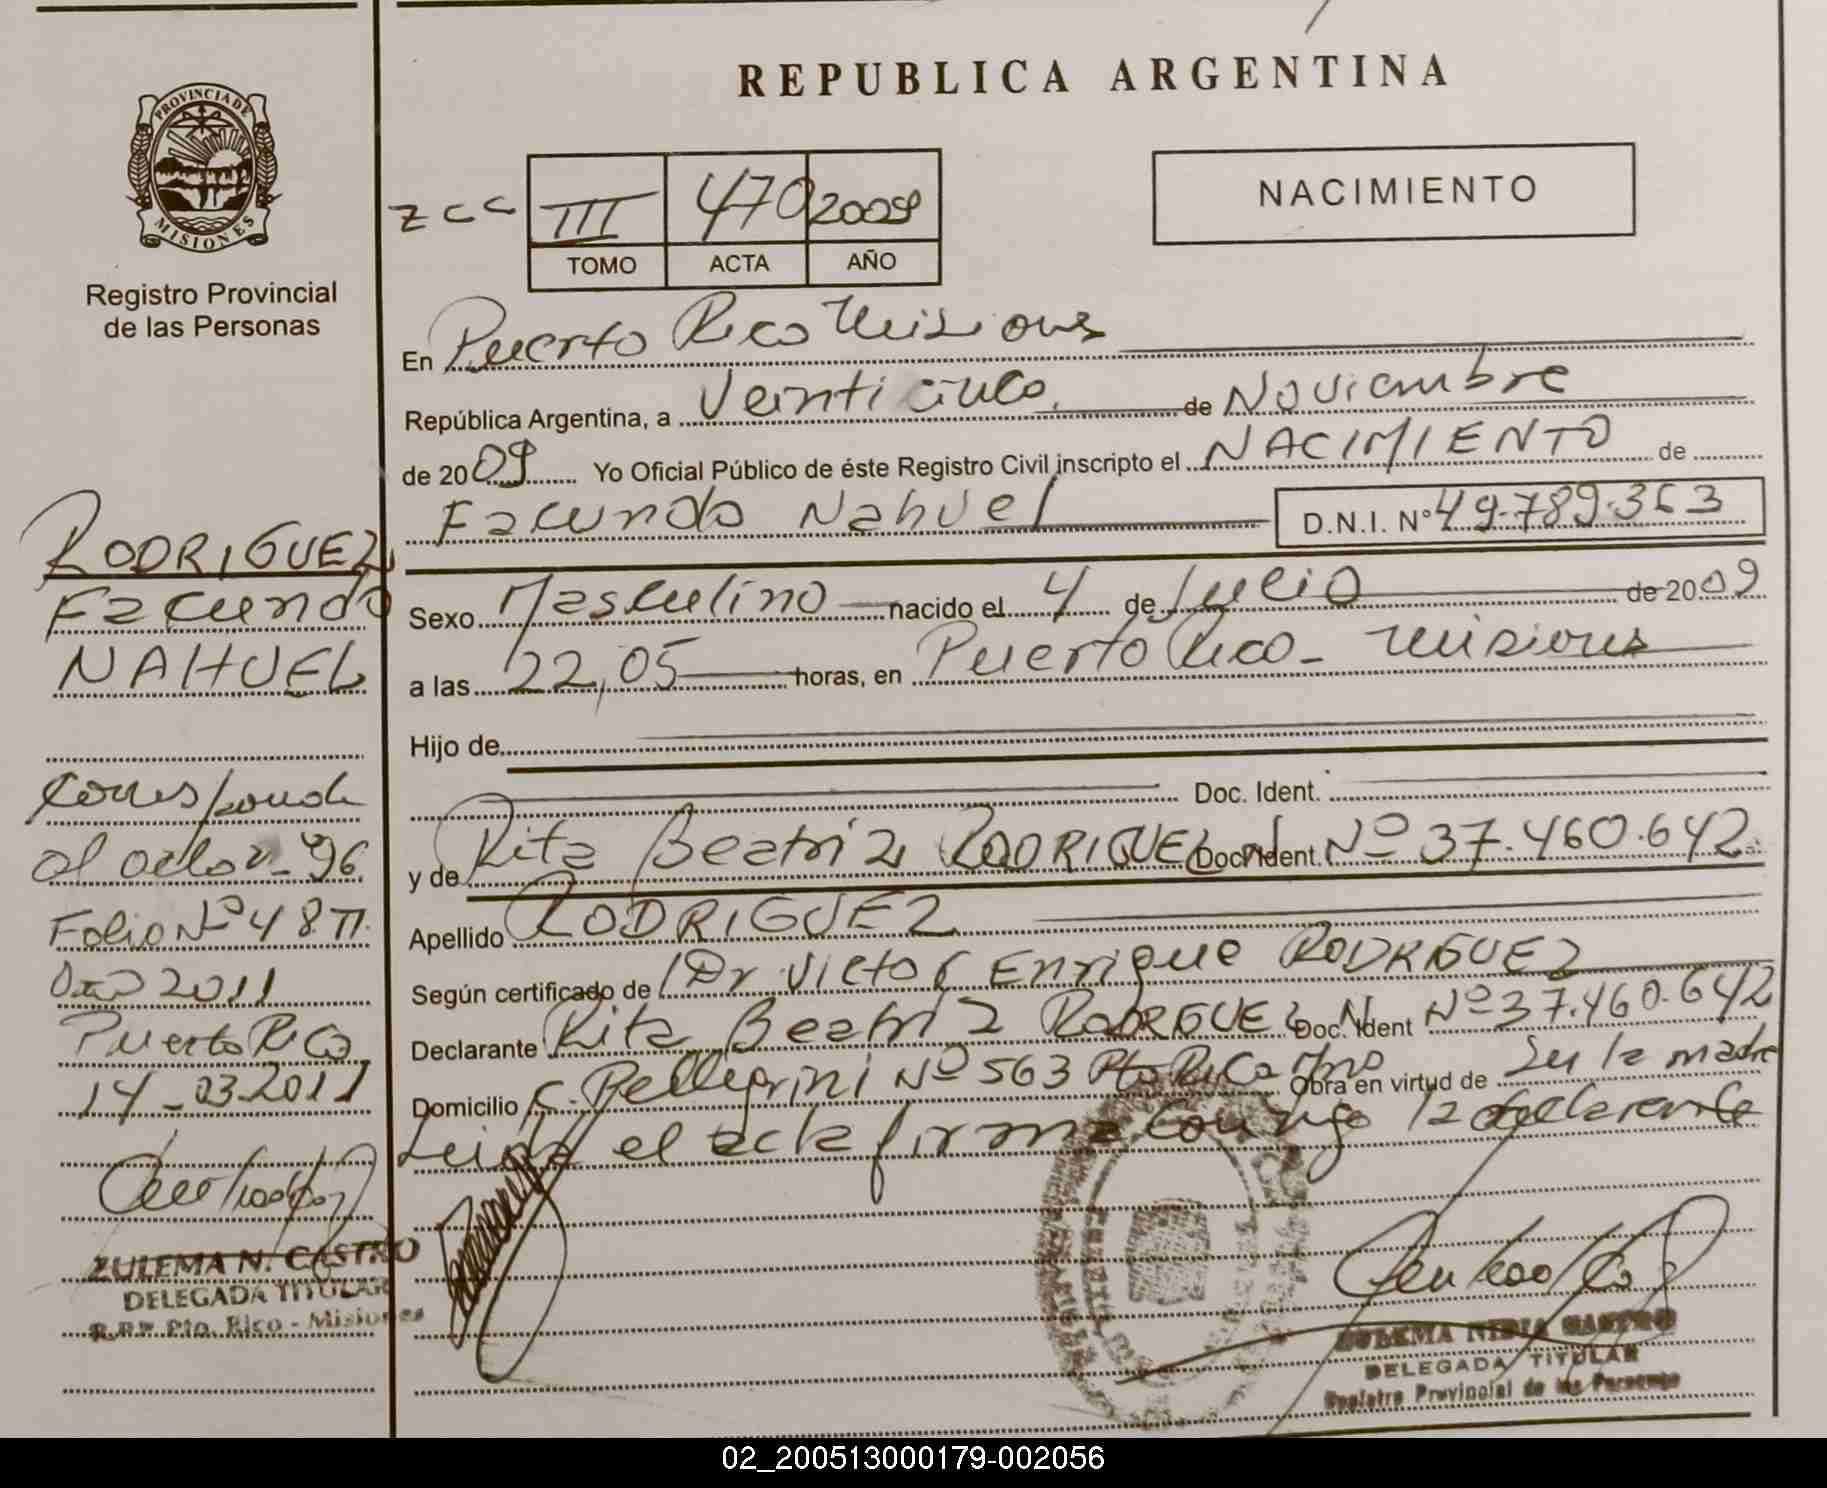 REPUBLICA ARGENTINA
PROVINCIA DE
MISIONES
Registro Provincial
de las Personas
NACIMIENTO
zcc III 470 2009
TOMO ACTA AÑO
En Puerto Rico Misiones
República Argentina, a Veinticinco de Noviembre
de 2009 Yo Oficial Público de éste Registro Civil inscripto el NACIMIENTO de
Facundo Nahuel D.N.I. Nº 49.789.363
Sexo Masculino nacido el 4 de Julio de 2009
a las 22,05 horas, en Puerto Rico - Misiones
Hijo de
Doc. Ident.
y de Rita Beatriz RODRIGUEZ Doc. Ident. Nº 37.460.642
Apellido RODRIGUEZ
Según certificado de Dr Victor Enrique RODRIGUEZ
Declarante Rita Beatriz RODRIGUEZ Doc. Ident Nº 37.460.642
Domicilio C. Pellegrini Nº 563 Pto Rico Mnes Obra en virtud de Ser la madre
Leida el acta firma conmigo la declarante
ZULEMA NIDIA CASTRO
DELEGADA TITULAR
Registro Provincial de las Personas
RODRIGUEZ
Facundo
NAHUEL
Corresponde
al acta Nº 96
Folio Nº 48 T II
Año 2011
Puerto Rico
14-03-2011
ZULEMA N. CASTRO
DELEGADA TITULAR
R.P.P. Pto. Rico - Misiones
02_200513000179-002056